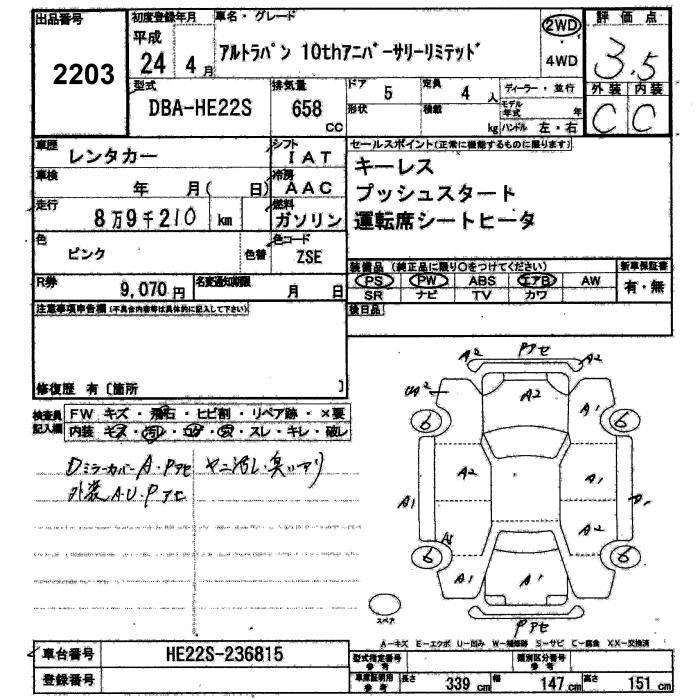 出品番号 初度登録年月 車名・グレード 2WD 評価点
2203 平成 24年 4月 アルトラパン 10thアニバーサリーリミテッド 4WD 3.5
型式 DBA-HE22S 排気量 658 cc ドア 5 定員 4 人 ディーラー・並行 外装 内装
形状 積載 kg モデル年式 年 ハンドル 左・右 C C
車歴 レンタカー シフト IAT セールスポイント(正常に機能するものに限ります)
車検 年 月( 日) 冷房 AAC キーレス
プッシュスタート
走行 8万9千210 km 燃料 ガソリン 運転席シートヒータ
色 ピンク 色替 色コード ZSE
装備品(純正品に限り○をつけてください) 新車保証書
R券 9,070円 名変通知期限 月 日 PS PW ABS エアB AW 有・無
SR ナビ TV カワ
注意事項申告欄(不具合内容等は具体的に記入して下さい) 後日品
修復歴 有〔箇所 〕
検査員記入欄 FW キズ・飛石・ヒビ割・リペア跡・×要
内装 キズ・汚レ・コゲ・穴・スレ・キレ・破レ
Dミラーカバー A・Pアセ ヤニ汚レ・臭いアリ
外装 A・U・Pアセ
Pアセ
A2 A2
A2
A1
6 6
A2 A1
A1
A2
6 6
A1 A1
Pアセ
スペア
A-キズ E-エクボ U-凹み W-補修跡 S-サビ C-腐食 XX-交換済
車台番号 HE22S-236815 型式指定番号 参考 類別区分番号 参考
登録番号 車庫証明用 参考 長さ 339 cm 幅 147 cm 高さ 151 cm